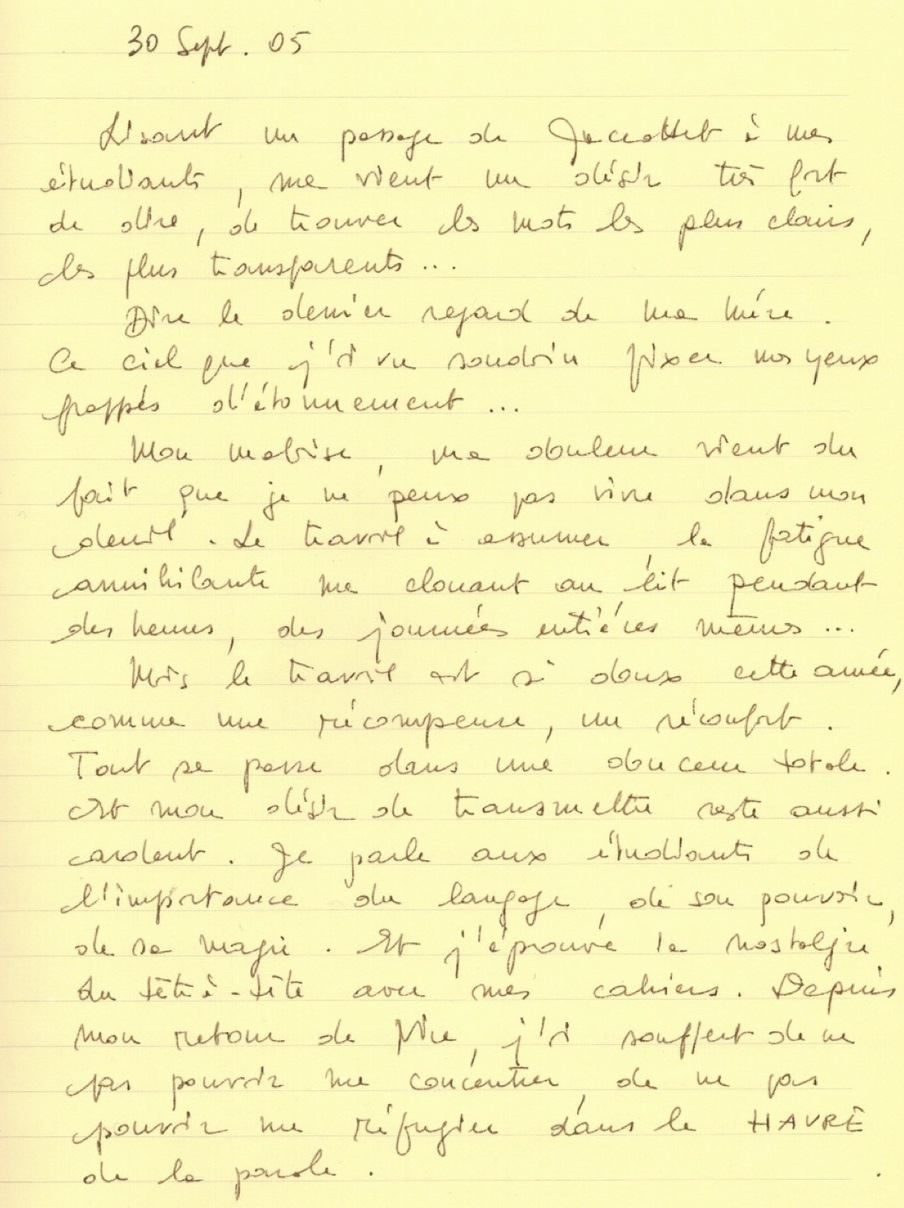 30 Sept. 05
Lisant un passage de Jaccottet à mes
étudiants, me vient un désir très fort
de dire, de trouver les mots les plus clairs,
les plus transparents...
Dire le dernier regard de ma mère.
Ce ciel que j'ai vu soudain fixer nos yeux
frappés d'étonnement...
Mon malaise, ma douleur vient du
fait que je ne peux pas vivre dans mon
deuil. Le travail à assumer, la fatigue
annihilante me clouant au lit pendant
des heures, des journées entières mêmes...
Mais le travail est si doux cette année,
comme une récompense, un réconfort.
Tout se passe dans une douceur totale.
Et mon désir de transmettre reste aussi
ardent. Je parle aux étudiants de
l'importance du langage, de son pouvoir,
de sa magie. Et j'éprouve la nostalgie
du tête à-tête avec mes cahiers. Depuis
mon retour de Nice, j'ai souffert de ne
pas pouvoir me concentrer, de ne pas
pouvoir me réfugier dans le HAVRE
de la parole.